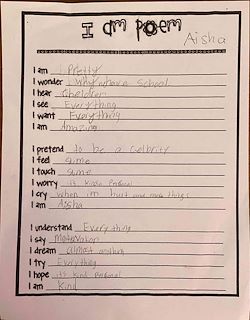 I am poem
Aisha
I am I Pretty
I wonder why we have School
I hear Cheldren
I see Everything
I want Everything
I am Amazing
I pretend to be a Celbrity
I feel Slime
I touch Slime
I worry is kinda Presonal
I cry when im hurt and more things
I am Aisha
I understand Everything
I say Motavation
I dream almost anything
I try Everything
I hope its kind Personal
I am Kind